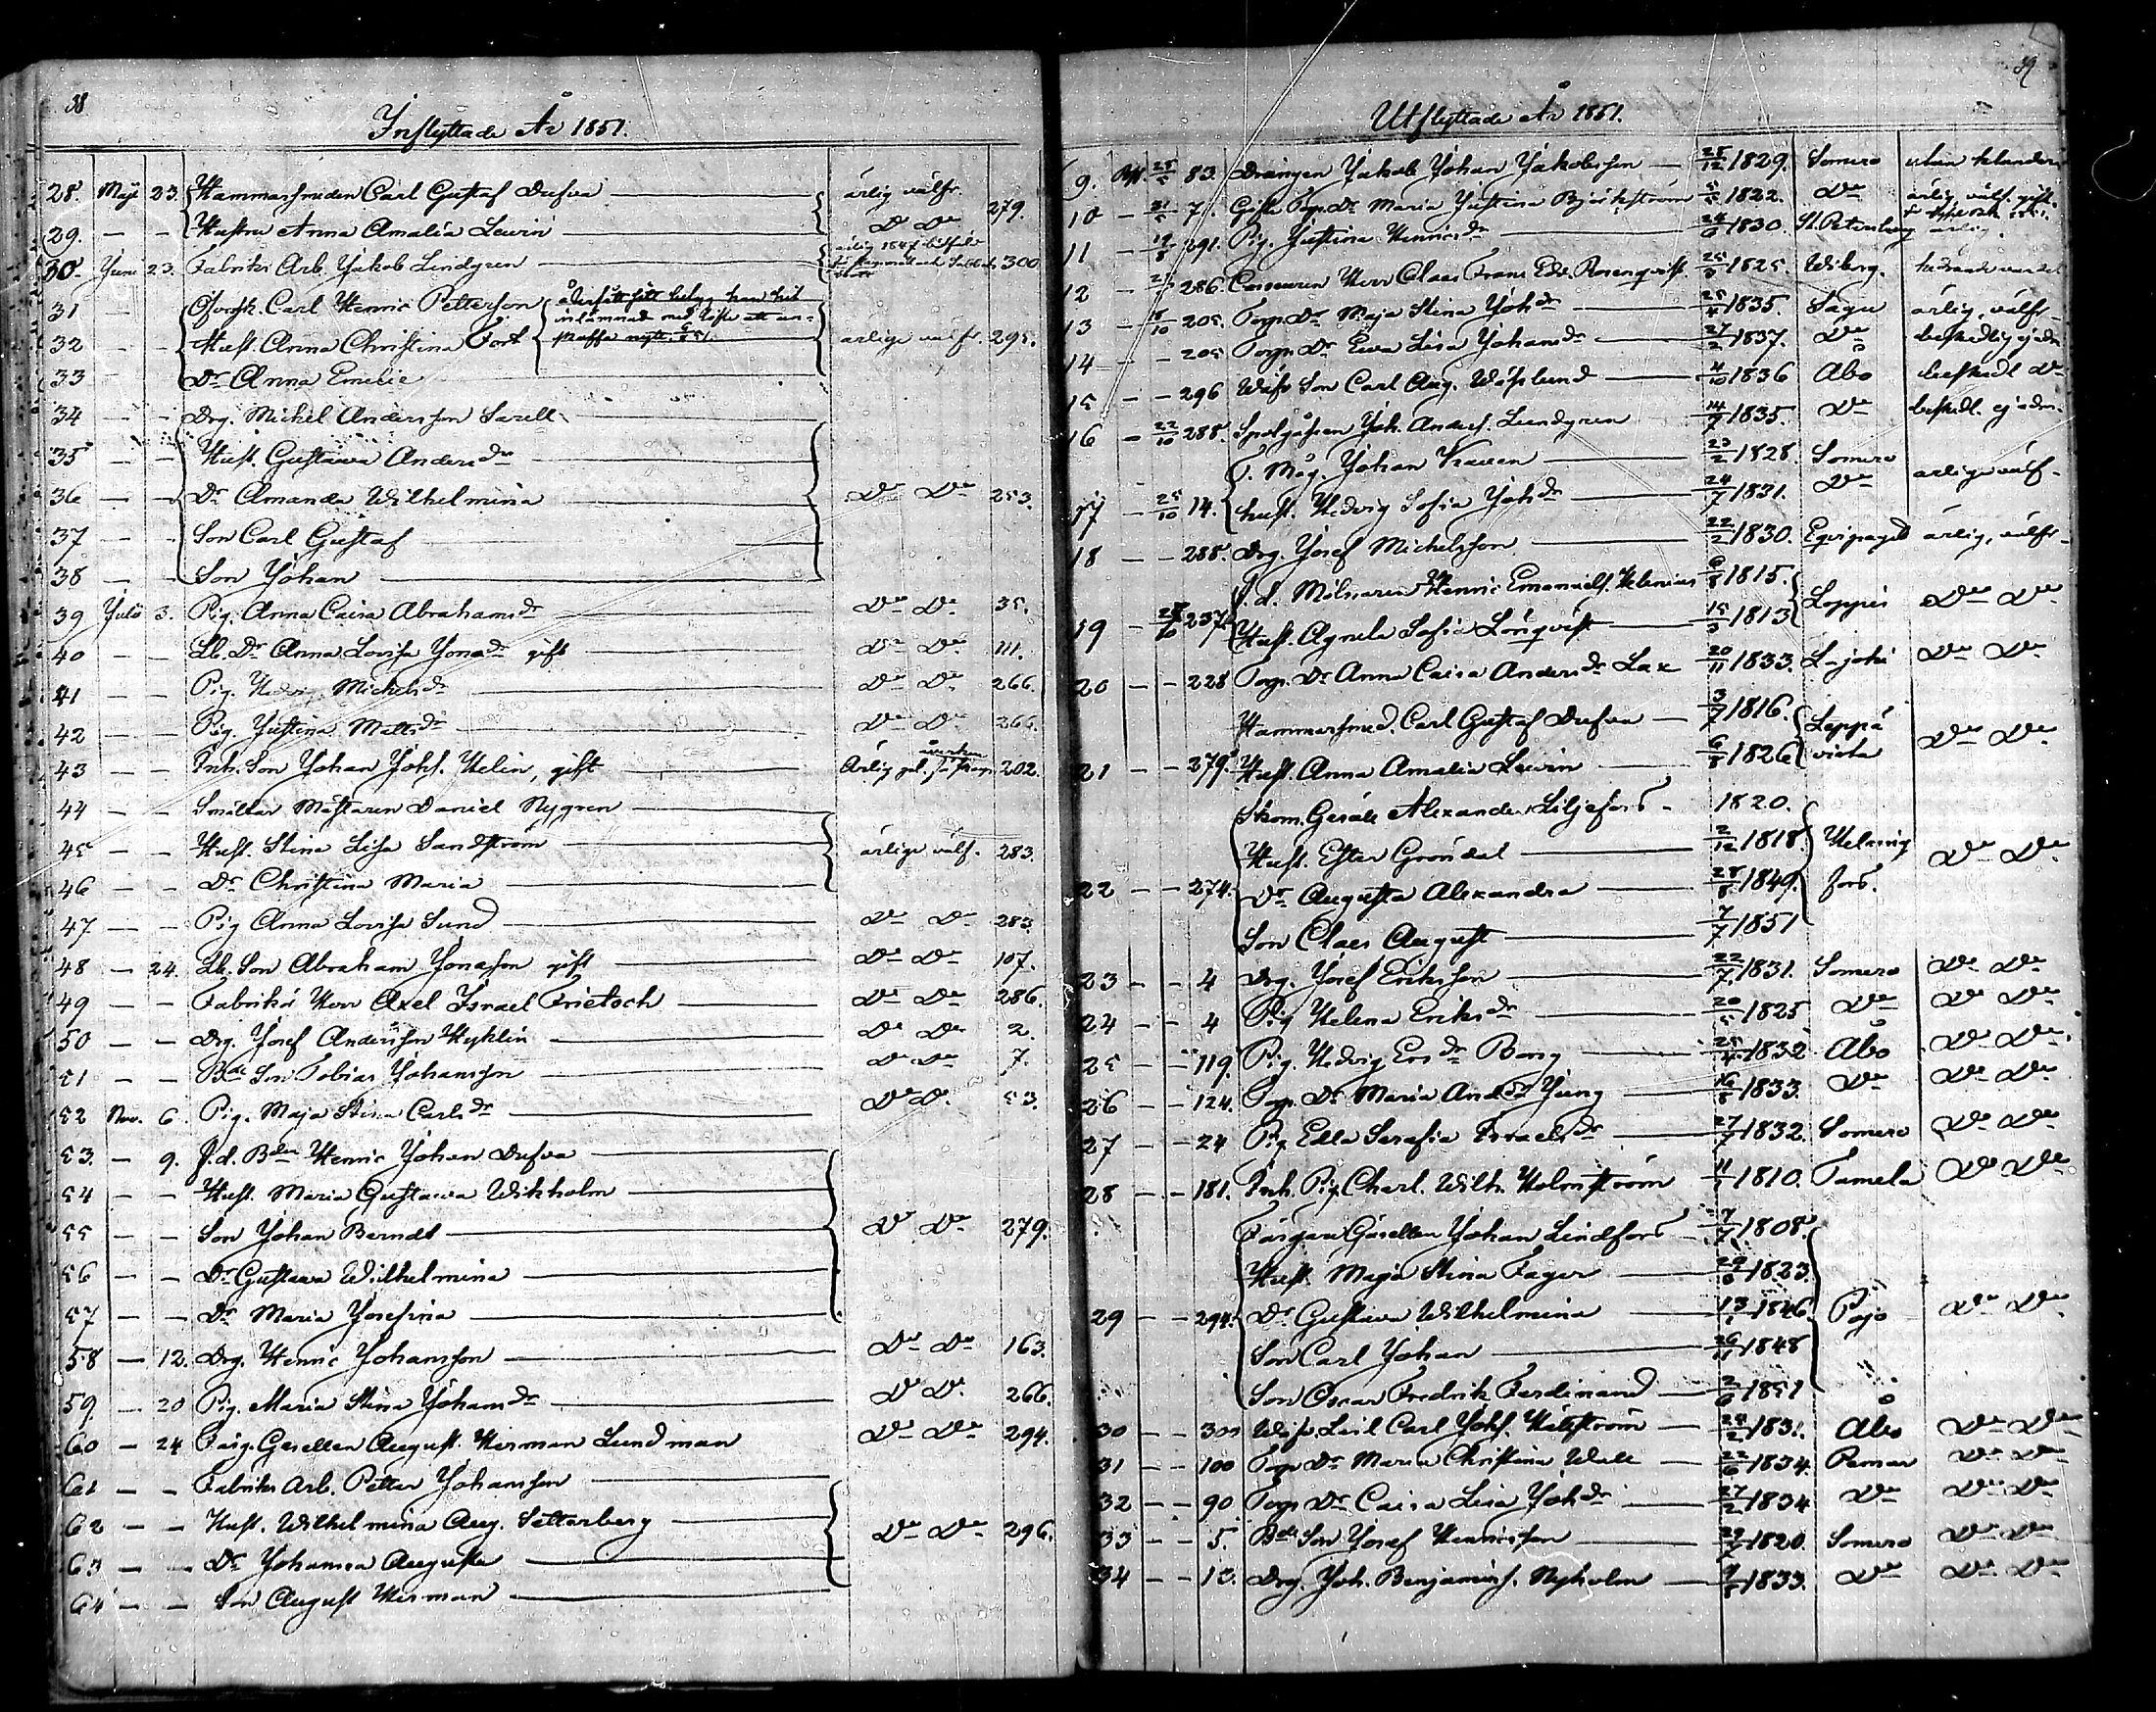 38
Inflyttade År 1851.
28. Maji 23. Hammarsmeden Carl Gustaf Dufva årlig välfr.
29. - - Hustru Anna Amalia Lewin Do Do 279.
30. Juni 23. Fabriks Arb. Jakob Lindgren årlig 1847 300
31 - Carl Henric Petterson återfått sitt betyg han hit
inlämnade med löfte att an-
32 - - Hust. Anna Christina Fort skaffa nytt. årlige välfr. 295.
33 Dr Anna Emelie
34 - - Drg. Michel Andersson Sarell
35 - - Hust. Gustawa Andersdr
36 - - Dr Amanda Wilhelmina Do Do 253.
37 - - Son Carl Gustaf
38 - - Son Johan
39 Julii 3. Pig. Anna Caisa Abrahamsdr Do Do 35.
40 - - Lb. Dr Anna Lovisa Jonadr gift Do Do 111.
41 - - Pig. Hedvig Michelsdr Do Do 266.
42 - - Pig. Justina Mattsdr Do Do 266.
43 - - Inh. Son Johan Johs. Helin, gift 202.
44 - - Smältar Mästaren Daniel Nygren
45 - - Hust. Stina Lisa Sandström årlige välf. 283.
46 - - Dr Christina Maria
47 - - Pig Anna Lovisa Sund Do Do 283.
48 - 24. Lb. Son Abraham Jonasson gift Do Do 107.
49 - - Fabrikö Herr Axel Israel Frietsch Do Do 286.
50 - - Drg. Josef Andersson Hyklin Do Do 2.
51 - - Bde Son Tobias Johansson Do Do 7.
52 Nov. 6. Pig. Maja Stina Carlsdr Do Do 53.
53. - 9. f.d. Bden Henric Johan Dufva
54 - - Hust. Maria Gustawa Wikholm
55 - - Son Johan Berndt Do Do 279.
56 - - Dr Gustawa Wilhelmina
57 - - Dr Maria Josefina
58 - 12. Drg. Henric Johansson Do Do 163.
59. - 20 Pig. Maria Stina Johansdr Do Do 266.
60 - 24 Färg. Gesellen August Herman Lundman Do Do 294.
61 - - Fabriks Arb. Petter Johansson
62 - - Hust. Wilhelmina Aug. Setterberg Do Do 296.
63 - - Dr Johanna Augusta
64 - - Son August Herman
39
Utflyttade År 1851.
9. 25/5 83. Drängen Jakob Johan Jakobsson 25/12 1829. Somero utan klander
10 - 21/5 7. Gifta Torp. Dr Maria Justina Björkström 5/5 1822. Do årlig, välf. gift
11 - 291. Pig. Justina Henricsdr 1830. St. Petersburg årlig.
12 - 286. Herr Claes Frans Edv. Rosenqvist 1825. Wiborg.
13 - 8/10 205. Torp. Dr Maja Stina Johdr 25/4 1835. Sagu årlig, välfr.
14 - - 205 Torp. Dr Ewa Lisa Johansdr 27/2 1837. Do
15 - - 296 Son Carl Aug. 4/10 1836 Åbo beskedl Do
16 - 22/10 288. Spolgåssen Joh. Anders. Lundgren 14/7 1835. Do beskedl.
T. Måg Johan 23/2 1828. Somero
17 - 25/10 14. hust. Hedvig Sofia Johdr 24/7 1831. Do årlige välf.
18 - - 288. Drg. Josef Michelsson 22/2 1830. Eqvipaged årlig, välfr.
f.d. Mölnaren Henric Emanuels. Helenius 1815.
19 - 237. Hust. Agneta Sofia Lönqvist 1813 Loppis Do Do
20 - - 228 Torp. Dr Anna Caisa Andersdr Lax 20/11 1833. L-joki Do Do
Hammarsmed. Carl Gustaf Dufva 3/7 1816. Leppä
21 - - 279. Hust. Anna Amalia Lewin 1826 virta Do Do
Skom. Gesäll Alexander Liljefors 1820.
Hust. Ester Gröndal 2/12 1818. Helsing
22 - - 274. Dr Augusta Alexandra 1849. fors. Do Do
Son Claes August 7/7 1851
23 - - 4 Drg. Josef Eriksson 22/7 1831. Somero Do Do
24 - - 4 Pig Helena Eriksdr 1825 Do Do Do
25 - - 119. Pig. Hedvig Ersdr Borg 1832 Åbo Do Do
26 - - 124. Torp. Dr Maria Andsdr Jung 1833. Do Do Do
27 - - 24 Pig Edla Serafia Israelsdr 1832. Somero Do Do
28 - - 181. Inh. Pig. Charl. Wilh. Holmström 1810. Tamela Do Do
Färgare Gesellen Johan Lindfors 7/7 1808.
Hust. Maja Stina Fager 1823.
29 - - 294. Dr Gustava Wilhelmina 1846. Pojo Do Do
Son Carl Johan 1848
Son Oscar Fredrik Ferdinand 1851
30 - - Carl Johs. 1831. Åbo Do Do
31 - - 100 Torp Dr Maria Christina Wall 1834. Pemar Do Do
32 - - 90. Torp Dr Caisa Lisa Johdr 27/2 1834 Do Do Do
33 - - 5. Bde Son Josef Henricsson 1820. Somero Do Do
34 - - 13. Drg. Joh. Benjamins. Nyholm 1833. Do Do Do